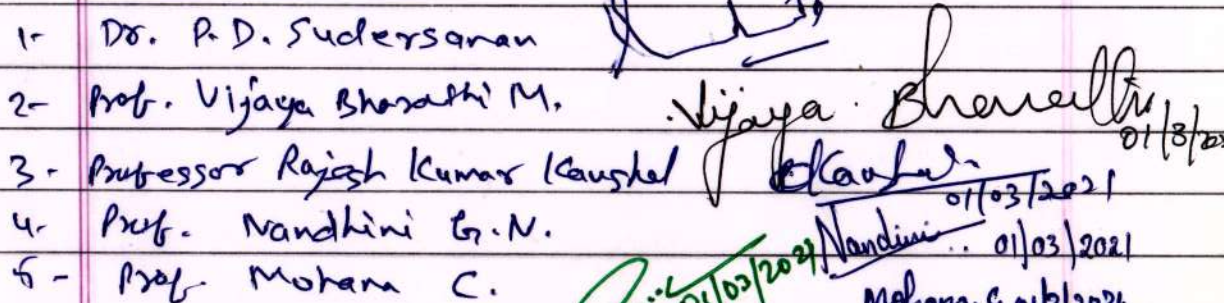 1- Dr. P. D. Sudersanan
2- Prof. Vijaya Bharathi M. Vijaya Bharathi 01/3/202
3- Professor Rajesh Kumar Kaushal Kaushal 01/03/2021
4- Prof. Nandhini G.N. Nandini 01/03/2021
5- Prof. Mohana C. 01/03/2021 Mohana. C 01/3/2021